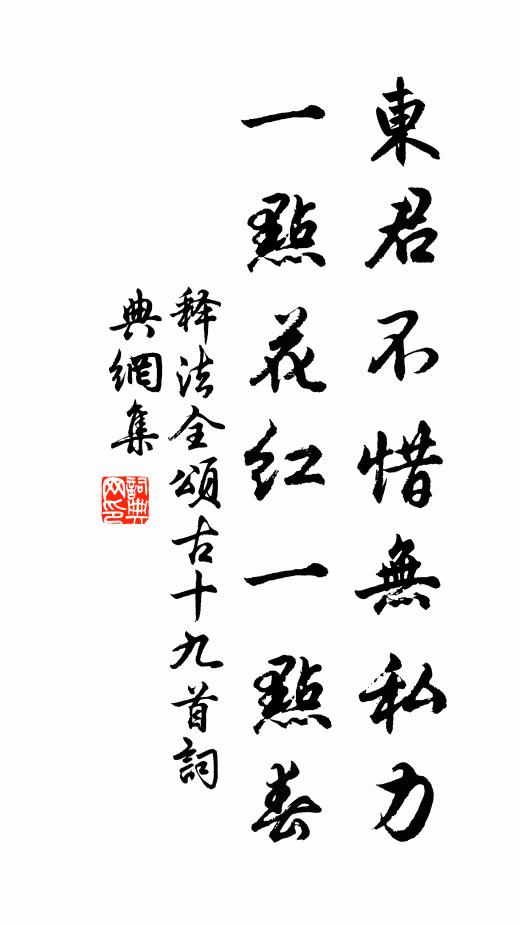 東君不惜無私力
一點花红一點春
释法全頌古十九首詞
典網集
詞典网印